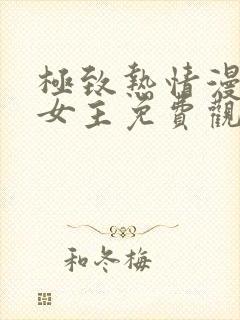 極致熱情漫
女主免費觀
和冬梅